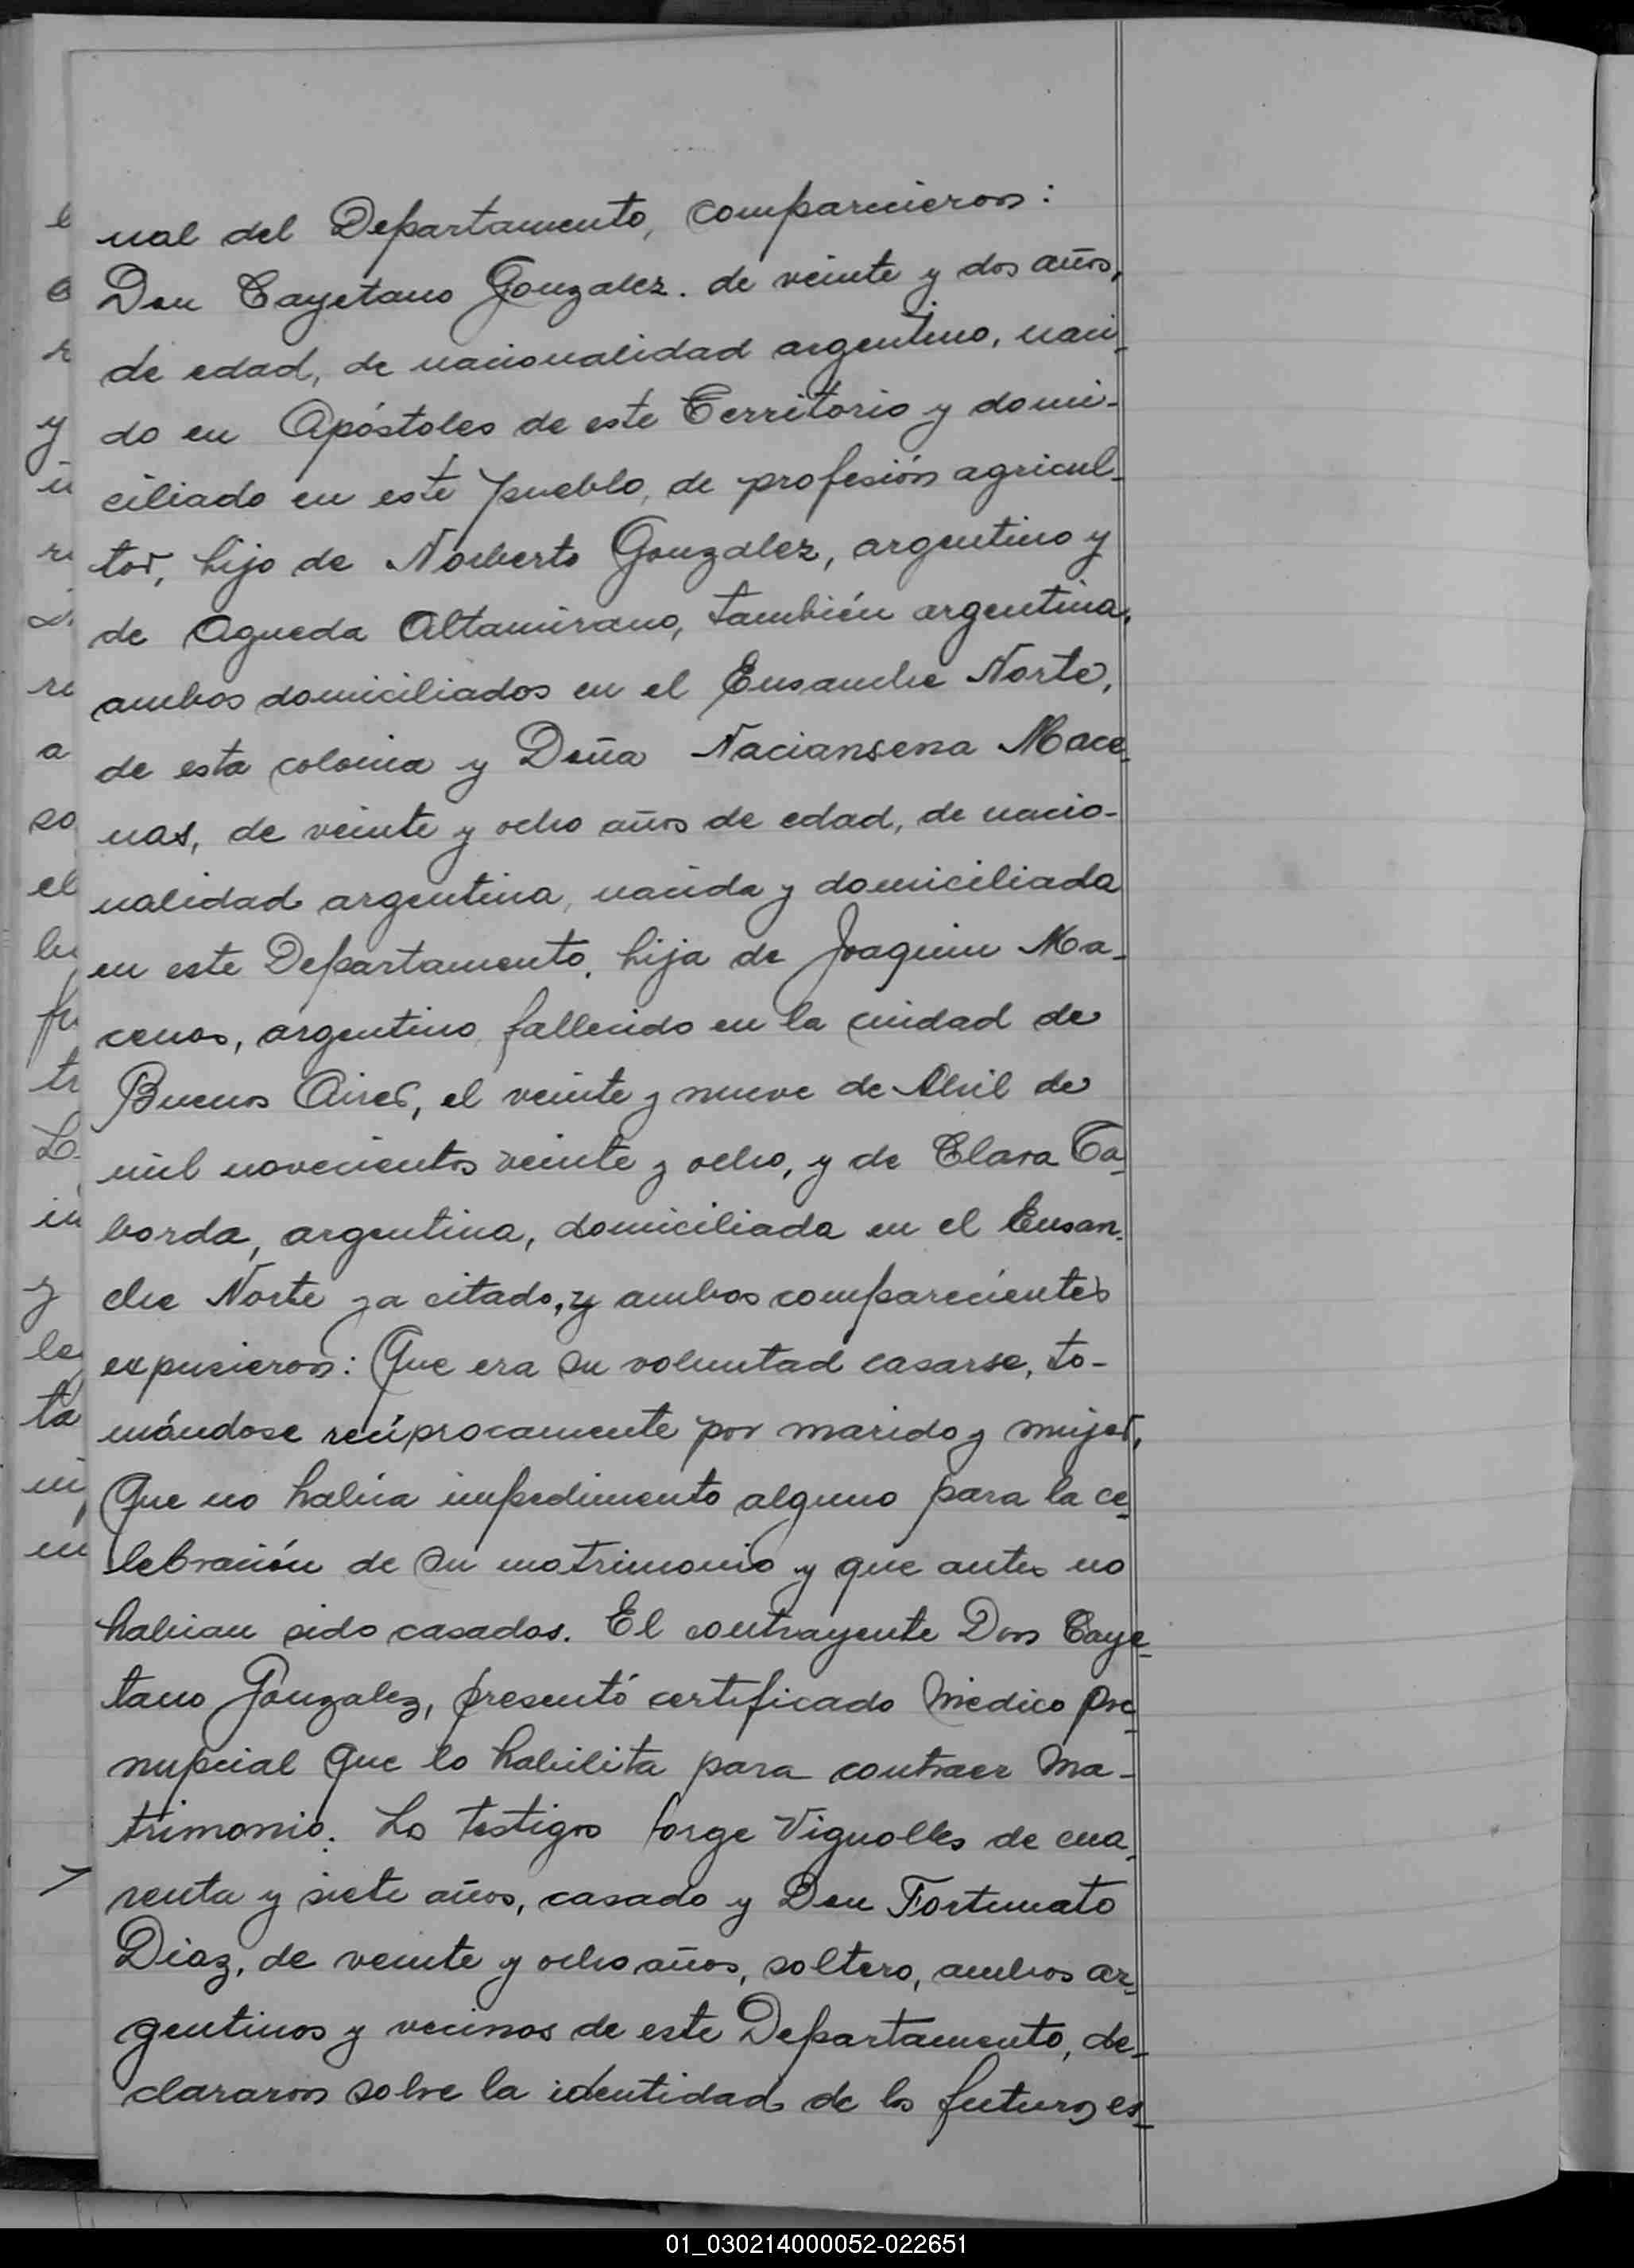 nal del Departamento, comparecieron:
Don Cayetano Gonzalez. de veinte y dos años,
de edad, de nacionalidad argentino, naci-
do en Apóstoles de este Territorio y domi-
ciliado en este pueblo, de profesión agricul-
tor, hijo de Norberto Gonzalez, argentino y
de Agueda Altamirano, también argentina,
ambos domiciliados en el Ensanche Norte,
de esta colonia y Doña Naciansena Mace-
nas, de veinte y ocho años de edad, de nacio-
nalidad argentina, nacida y domiciliada
en este Departamento, hija de Joaquin Ma-
cenas, argentino fallecido en la ciudad de
Buenos Aires, el veinte y nueve de Abril de
mil novecientos veinte y ocho, y de Clara Ta-
borda, argentina, domiciliada en el Ensan-
che Norte ya citado, y ambos comparecientes
expusieron: Que era su voluntad casarse, to-
mándose recíprocamente por marido y mujer,
Que no había impedimento alguno para la ce-
lebración de su matrimonio y que antes no
habian sido casados. El contrayente Don Caye-
tano Gonzalez, presentó certificado médico pre-
nupcial que lo habilita para contraer ma-
trimonio. Los testigos Jorge Vignolles de cua-
renta y siete años, casado y Don Fortunato
Diaz, de veinte y ocho años, soltero, ambos ar-
gentinos y vecinos de este Departamento, de-
clararon sobre la identidad de los futuros es-
01_030214000052-022651